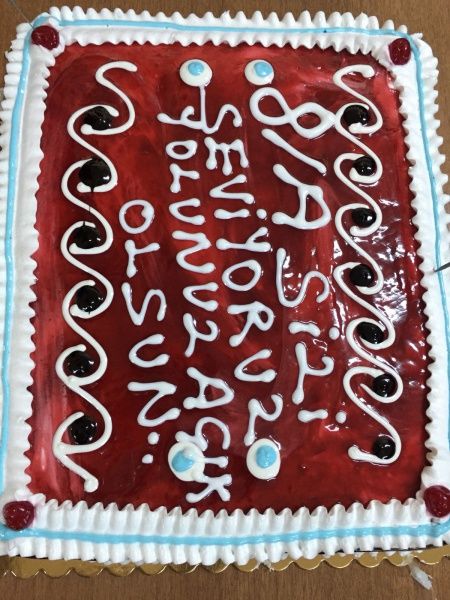 8/A SİZİ
SEVİYORUZ
YOLUNUZ AÇIK
OLSUN..